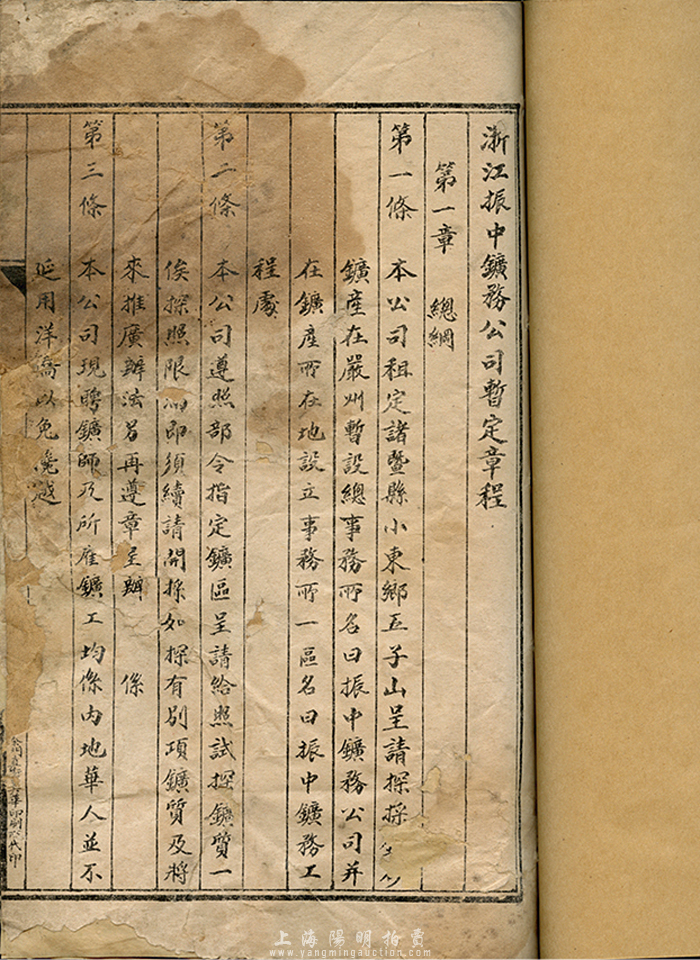 浙江振中鑛務公司暫定章程
第一章 總綱
第一條 本公司租定諸暨縣小東鄉五子山呈請探採
鑛産在嚴州暫設總事務所名曰振中鑛務公司并
在鑛産所在地設立事務所一區名曰振中鑛務工
程處
第二條 本公司遵照部令指定鑛區呈請給照試探鑛質一
俟探照限滿即須續請開採如探有别項鑛質及將
來推廣辦法另再遵章呈辦 係
第三條 本公司現聘鑛師及所雇鑛工均係内地華人並不
延用洋僑以免攙越
印刷代印
上海陽明拍賣
www.yangmingauction.com